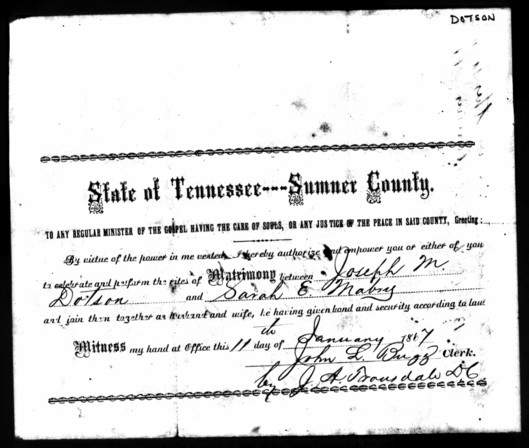 DOTSON
State of Tennessee---Sumner County.
TO ANY REGULAR MINISTER OF THE GOSPEL HAVING THE CARE OF SOULS, OR ANY JUSTICE OF THE PEACE IN SAID COUNTY, Greeting:
By virtue of the power in me vested, I hereby authorize and empower you or either of you
to celebrate and perform the rites of Matrimony between Joseph M.
Dotson and Sarah E
and join them together as husband and wife, he having given bond and security according to law
Witness my hand at Office this 11th day of January 1867
John L. Clerk.
by J A Trousdale D C